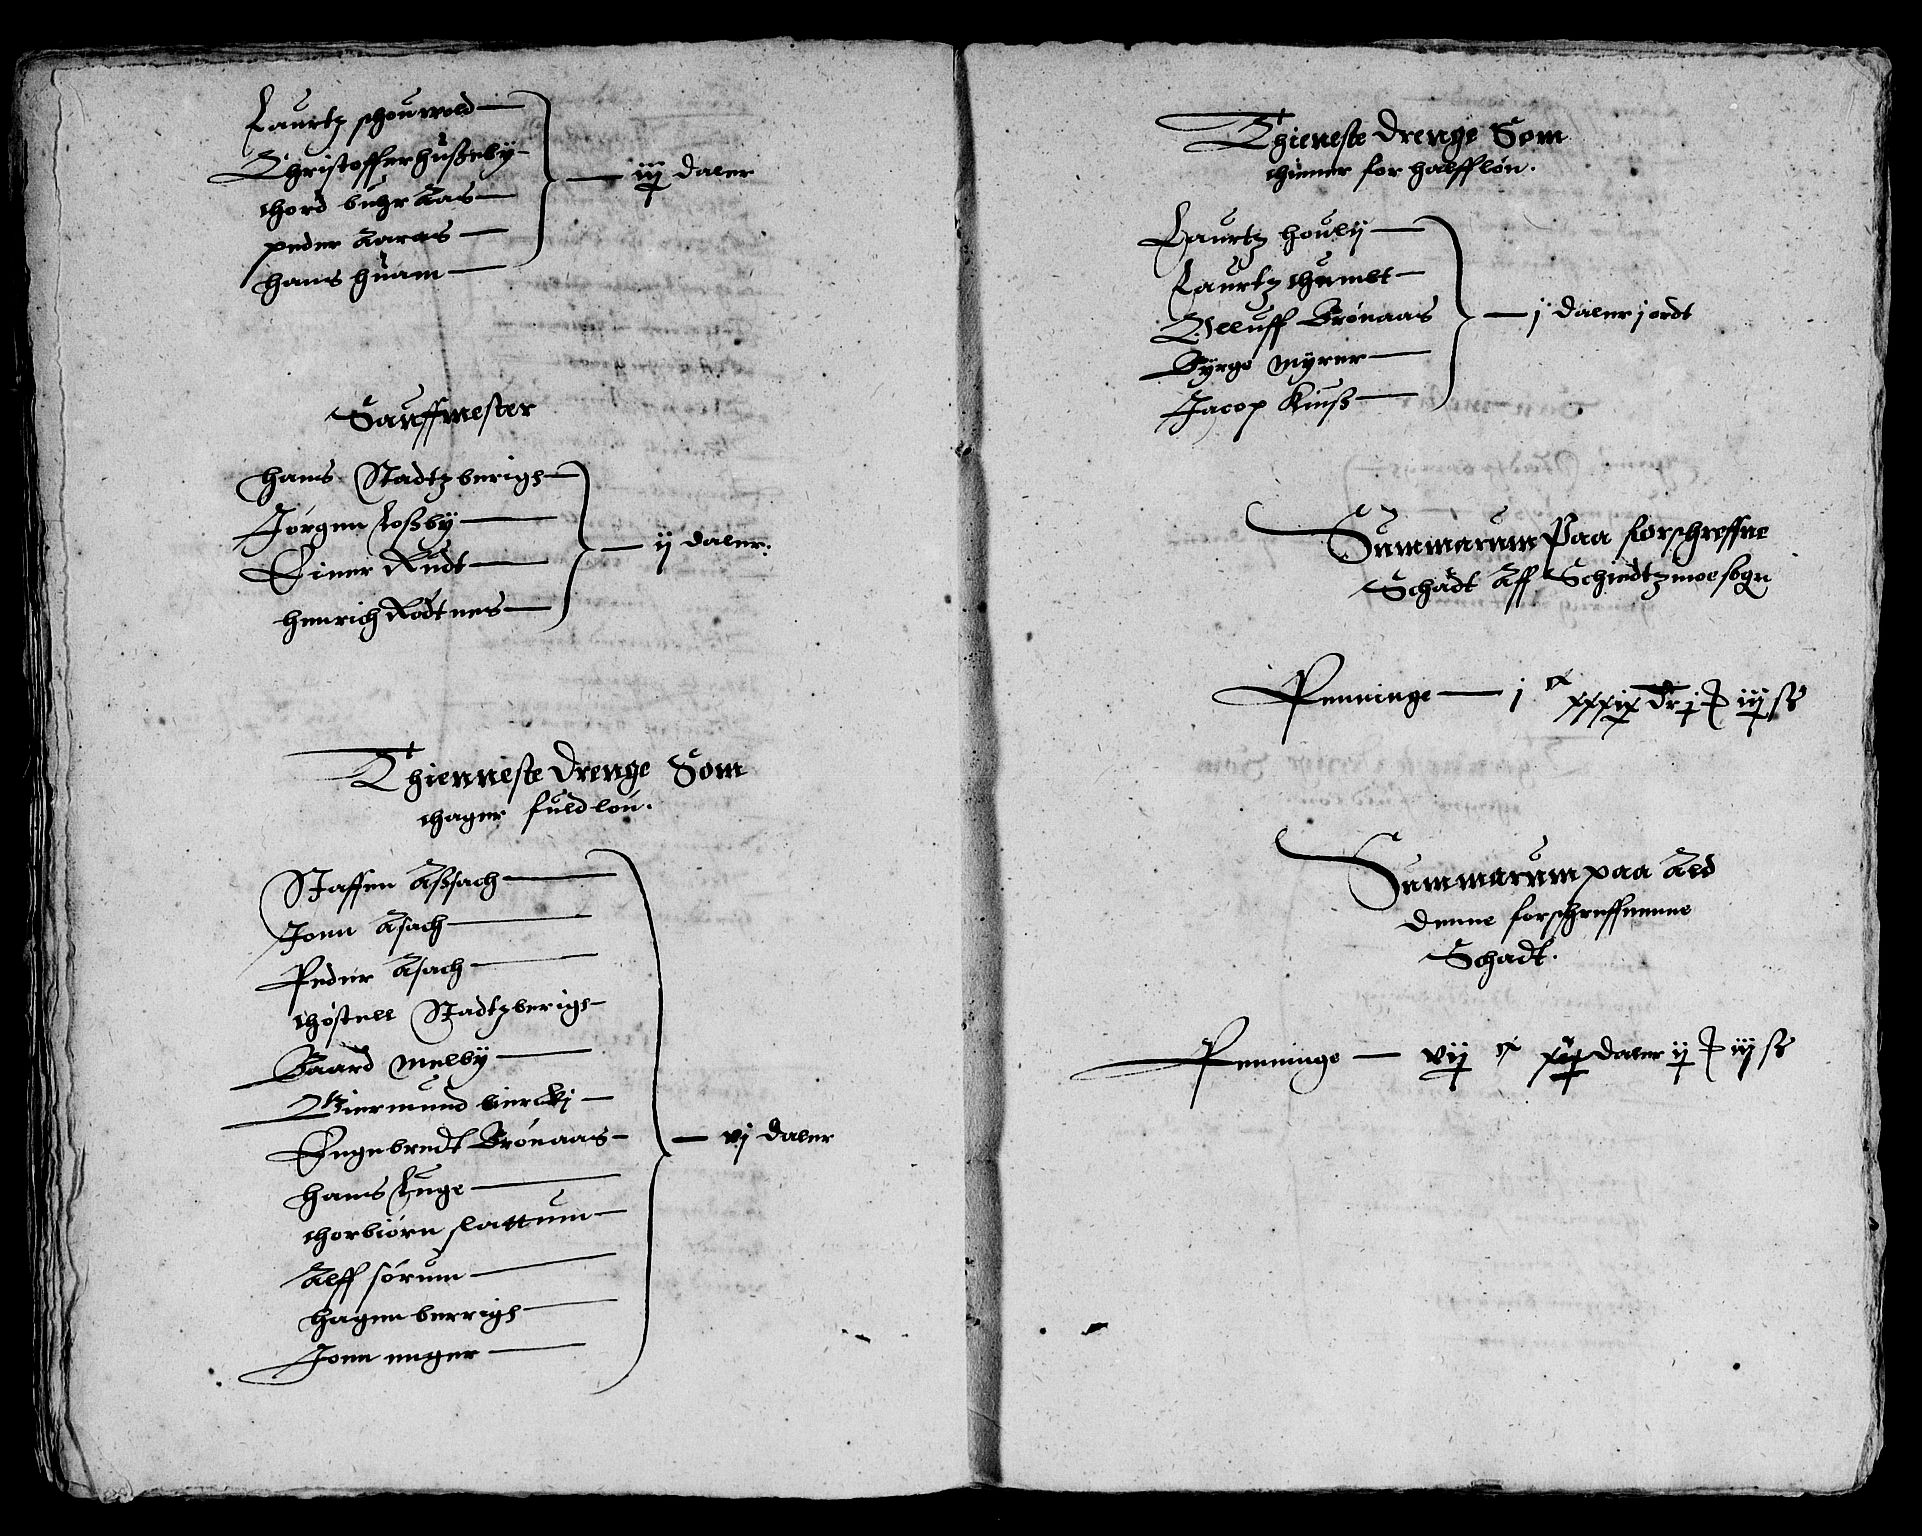 Laurtz schouwold
Christoffer hußeby
thord buhr Aas
peder Aaraas
hans huam
iij daler
Sauffmester
hans Stadtzberigs
Jørgen Loßby
Einer Rudt
henrich Rødtnes
ij daler.
Thienneste drenge Som
thager fuld løn.
Staffen Aßsach
Jonn Asach
Peder Asach
thøstell Stadtzberigs
Baard melby
Giermund biercki
Engebredt Brónaas
hans Luge
thorbiørn slattum
Alff sørum
hagen berrigs
Jonn enger
vj daler
Thieneste drenge Som
thiener for halff løn.
Laurtz houly
Laurtz thumbt
Oelluff Brónaas
Byrge myrer
Jacop Kiuß
j daler j ordt
Summarum Paa forschreffne
Schadt Aff Schiedtzmoe sogn
Penninge j c xxxix dr j iij ß
Summarum paa Ald
denne forschreffnenne
Schadt.
Penninge vij c daler ij iij ß